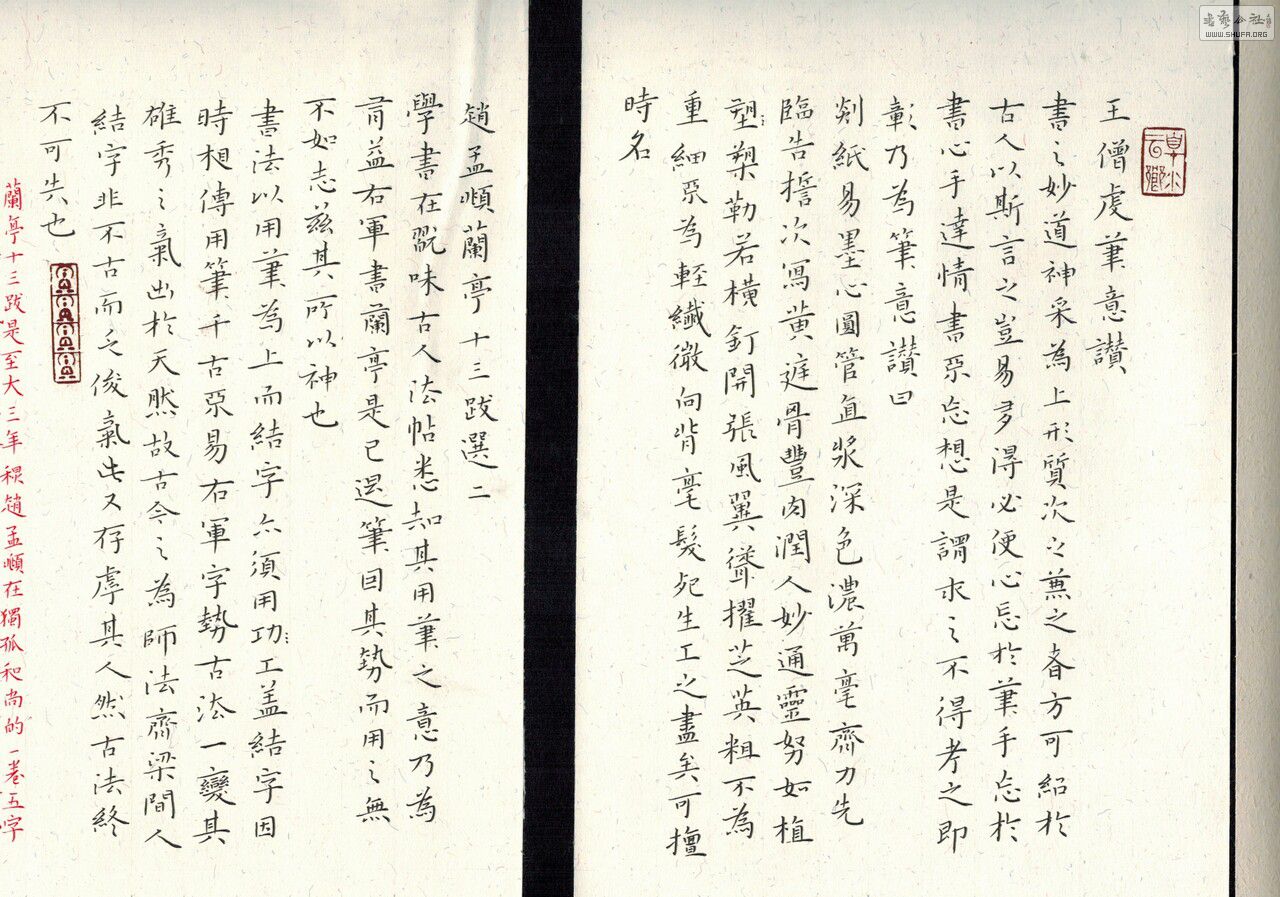 王僧虔筆意讚
書之妙道神采為上形質次之兼之者方可紹於
古人以斯言之豈易多得必使心忘於筆手忘於
書心手達情書不忘想是謂求之不得考之即
彰乃為筆意讚曰
剡紙易墨心圓管直漿深色濃萬毫齊力先
臨告誓次寫黃庭骨豐肉潤入妙通靈努如植
塑槊勒若橫釘開張鳳翼聳擢芝英粗不為
重細不為輕纖微向背毫髮死生工之盡矣可擅
時名
趙孟頫蘭亭十三跋選二
學書在翫味古人法帖悉知其用筆之意乃為
有益右軍書蘭亭是已退筆因其勢而用之無
不如志茲其所以神也
書法以用筆為上而結字亦須用功工盖結字因
時相傳用筆千古不易右軍字勢古法一變其
雄秀之氣出於天然故古今之為師法齊梁間人
結字非不古而乏俊氣此又存虖其人然古法終
不可失也
蘭亭十三跋是至大三年趙孟頫在獨孤和尚的一卷五字
書藝公社
WWW.SHUFA.ORG